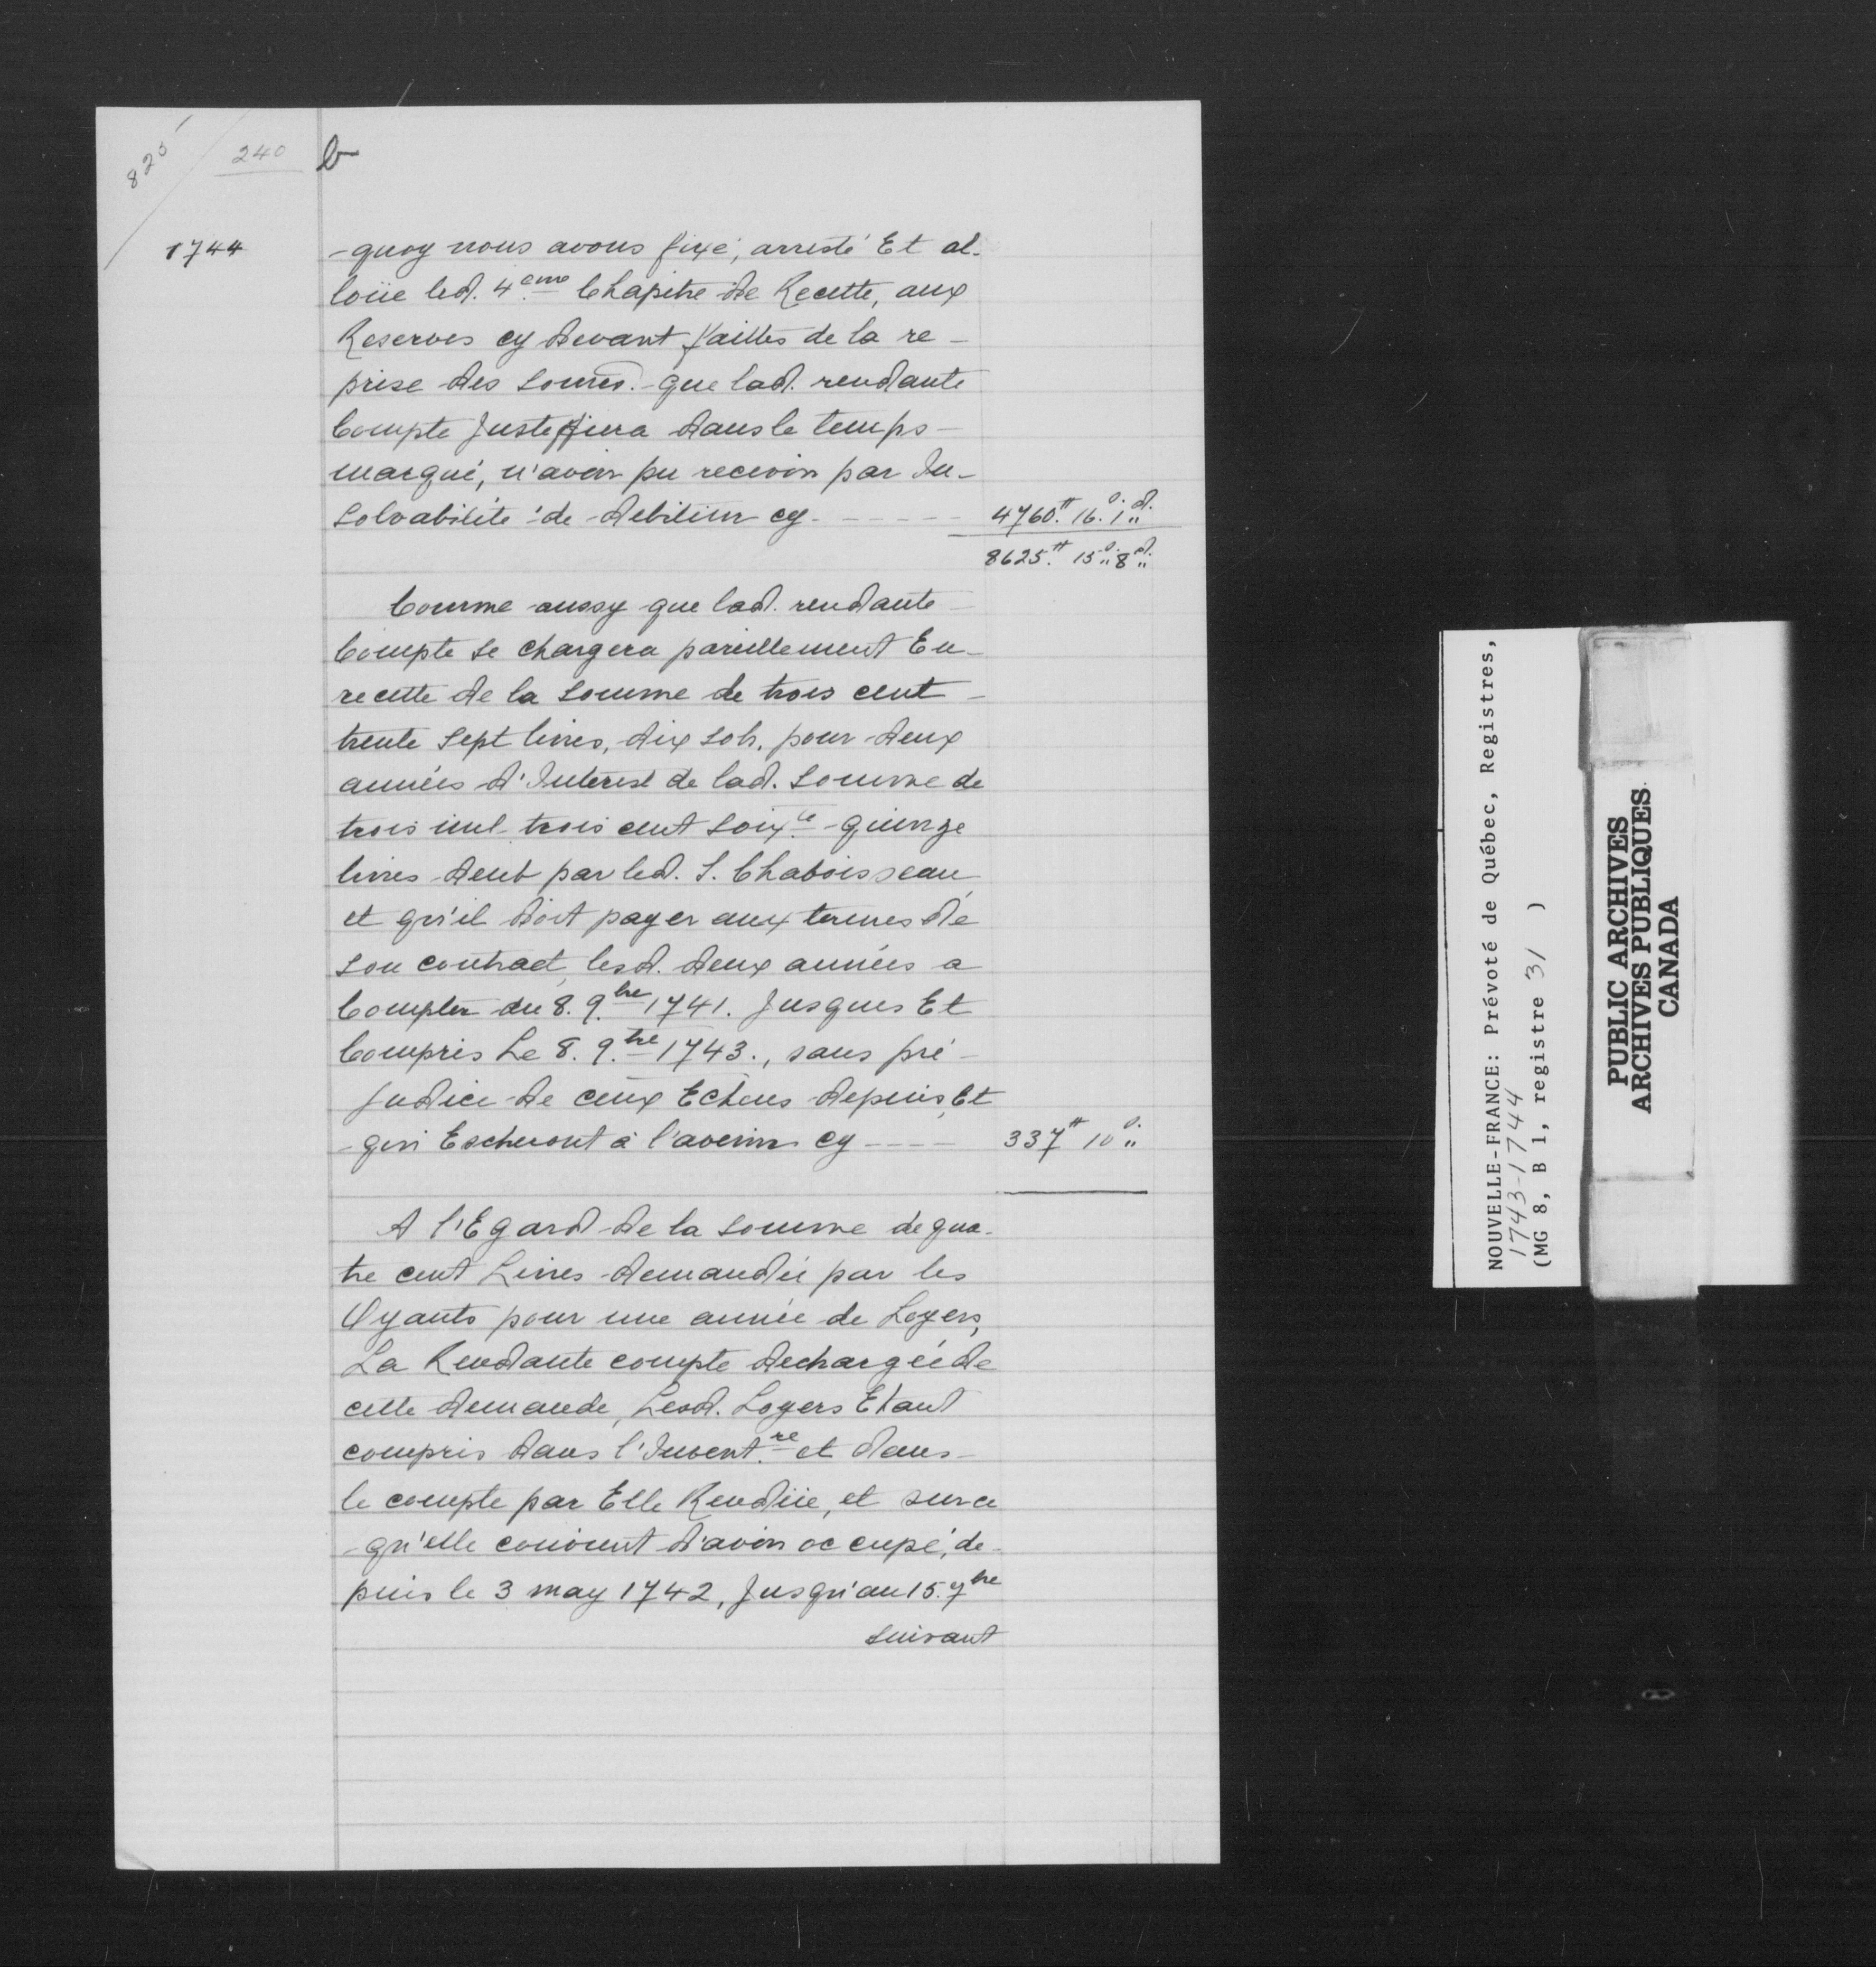 825
240 b
1744
-quoy nous avons fixé, arresté Et al-
loüe led. 4eme Chapitre de Recette, aux
Reserves cy devant faittes de la re-
prise des Somes. que lad. rendante
Compte Justeffiera dans le temps
marqué, n'avoir pu recevoir par In-
Solvabilité de debiteur cy - - - - - 4760.ᵗᵗ 16.ˢ 1.ᵈ
8625.ᵗᵗ 15.ˢ 8.ᵈ
Comme aussy que lad. rendante
Compte se chargera pareillement En
recette de la Somme de trois cent
trente Sept livres, dix Sols, pour deux
années d'Interest de lad. Somme de
trois mil trois cent Soixte quinze
livres deub par led. S. Chaboisseau
et qu'il doit payer aux termes de
son contract, lesd. deux années a
Compter du 8. 9.bre 1741. Jusques Et
Compris Le 8. 9.bre 1743., sans pré-
judice de ceux Echeus depuis, Et
qui Escheront à l'avenir cy - - - - 337ᵗᵗ 10ˢ
A l'Egard de la Somme de qua-
tre cent Livres demandée par les
Oyants pour une année de Loyers,
La Rendante compte dechargée de
cette demande, Lesd. Loyers Etant
compris dans l'Invent.re et dans
le compte par Elle Rendüe, et sur ce
qu'elle convient d'avoir occupé, de-
puis le 3 may 1742, Jusqu'au 15. 7bre
suivant
NOUVELLE-FRANCE: Prévoté de Québec, Registres,
1743-1744
(MG 8, B 1, registre 31 )
PUBLIC ARCHIVES
ARCHIVES PUBLIQUES
CANADA